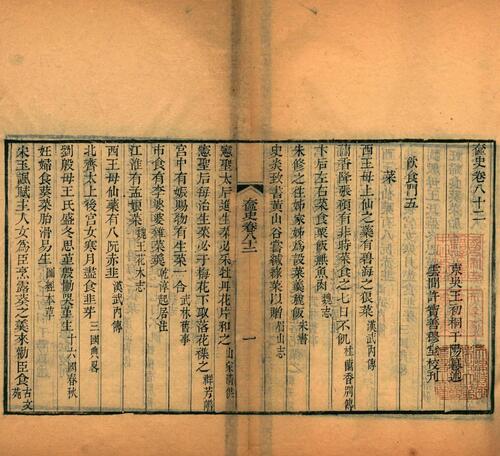 奩史卷八十二
東吳王初桐于陽纂述
雲間許寶善穆堂校刊
飲食門五
菜
西王母上仙之藥有碧海之琅菜 漢武內傳
蘭香降張碩有非時菜食之七日不飢 杜蘭香別傳
卞后左右菜食粟飯無魚肉 魏志
朱修之往姊家姊爲設菜羹麤飯 宋書
史炎致書黃山谷嘗緘綠菜以贈 眉山志
奩史卷八十二
一
憲聖太后進生菜必采牡丹花片和之 山家清供
憲聖后每治生菜必于梅花下取落花襍之 群芳譜
宮中有娠賜物有生菜一合 武林舊事
市食有李婆婆雜菜羹 乾淳起居注
江淮有孟娘菜 魏王花木志
西王母仙藥有八阮赤韭 漢武內傳
北齊太上後宮女寒月盡食韭芽 三國典略
劉殷母王氏盛冬思堇殷慟哭堇生 十六國春秋
妊婦食葵菜胎滑易生 圖經本草
宋玉諷賦主人女爲臣烹露葵之羹來勸臣食 古文苑